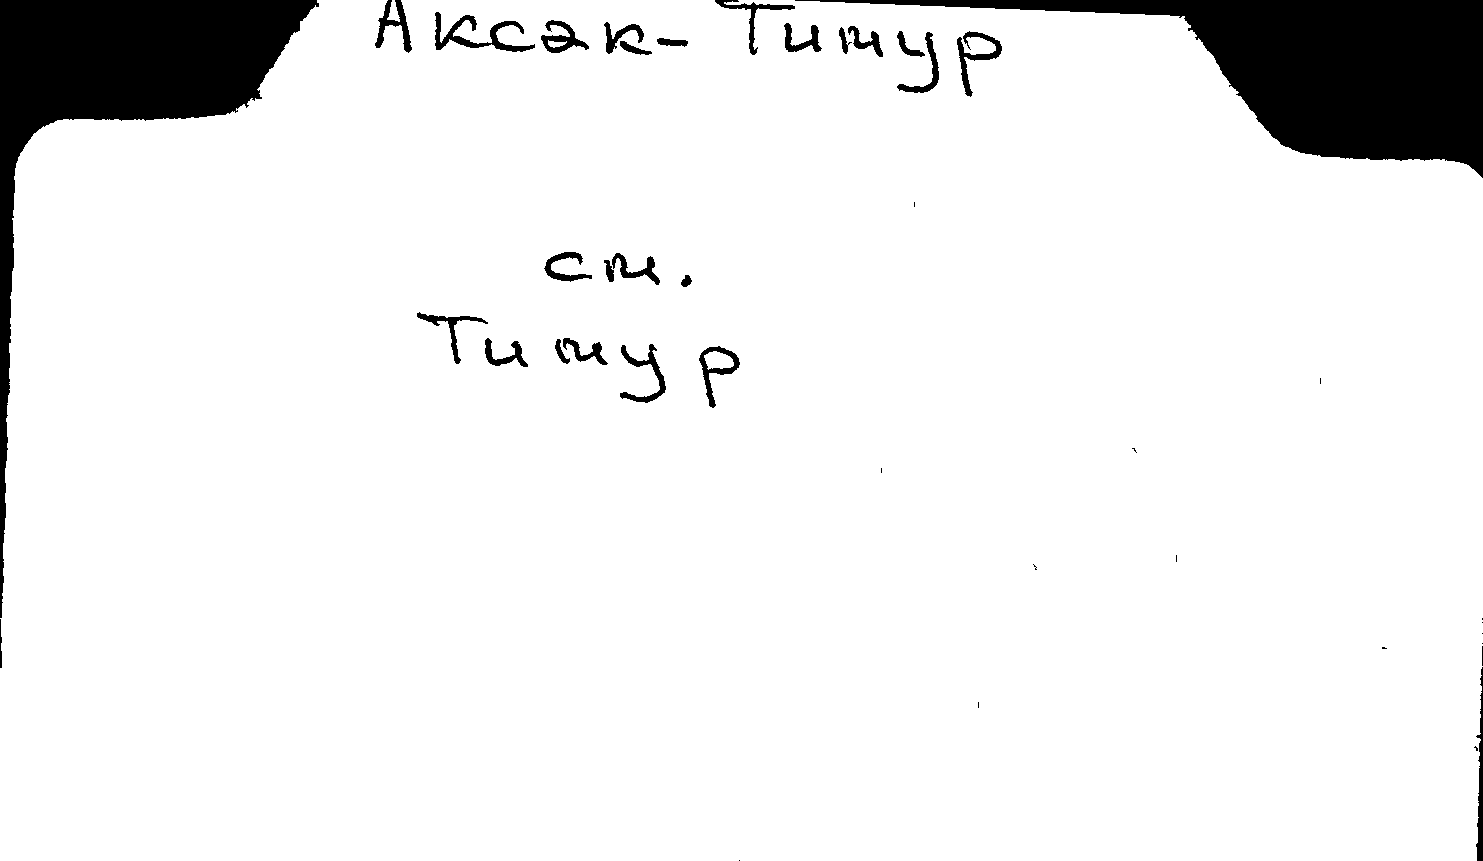 Аксак-Тимур
см.
Тимур